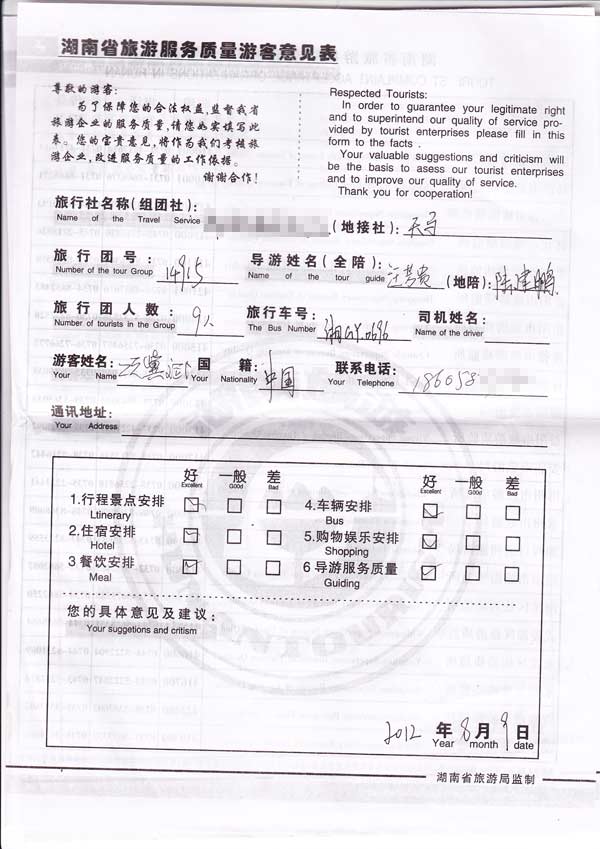 湖南省旅游服务质量游客意见表
尊敬的游客:
为了保障您的合法权益,监督我省
旅游企业的服务质量,请您如实填写此
表。您的宝贵意见,将作为我们考核旅
游企业,改进服务质量的工作依据。
谢谢合作!
Respected Tourists:
In order to guarantee your legitimate right
and to superintend our quality of service pro-
vided by tourist enterprises please fill in this
form to the facts .
Your valuable suggestions and criticism will
be the basis to asess our tourist enterprises
and to improve our quality of service.
Thank you for cooperation!
旅行社名称(组团社): (地接社):
Name of the Travel Service
旅行团号: 导游姓名(全陪): (地陪): 陆建鹏
Number of the tour Group 14915 Name of the tour guide
旅行团人数: 9人 旅行车号: 湘GY0696 司机姓名:
Number of tourists in the Group The Bus Number Name of the driver
游客姓名: 国籍: 中国 联系电话: 186058
Your Name Your Nationality Your Telephone
通讯地址:
Your Address
好 一般 差 好 一般 差
Excellent Good Bad Excellent Good Bad
1.行程景点安排 4.车辆安排
Ltinerary Bus
2.住宿安排 5.购物娱乐安排
Hotel Shopping
3 餐饮安排 6 导游服务质量
Meal Guiding
您的具体意见及建议:
Your suggetions and critism
2012 年 8 月 9 日
Year month date
湖南省旅游局监制